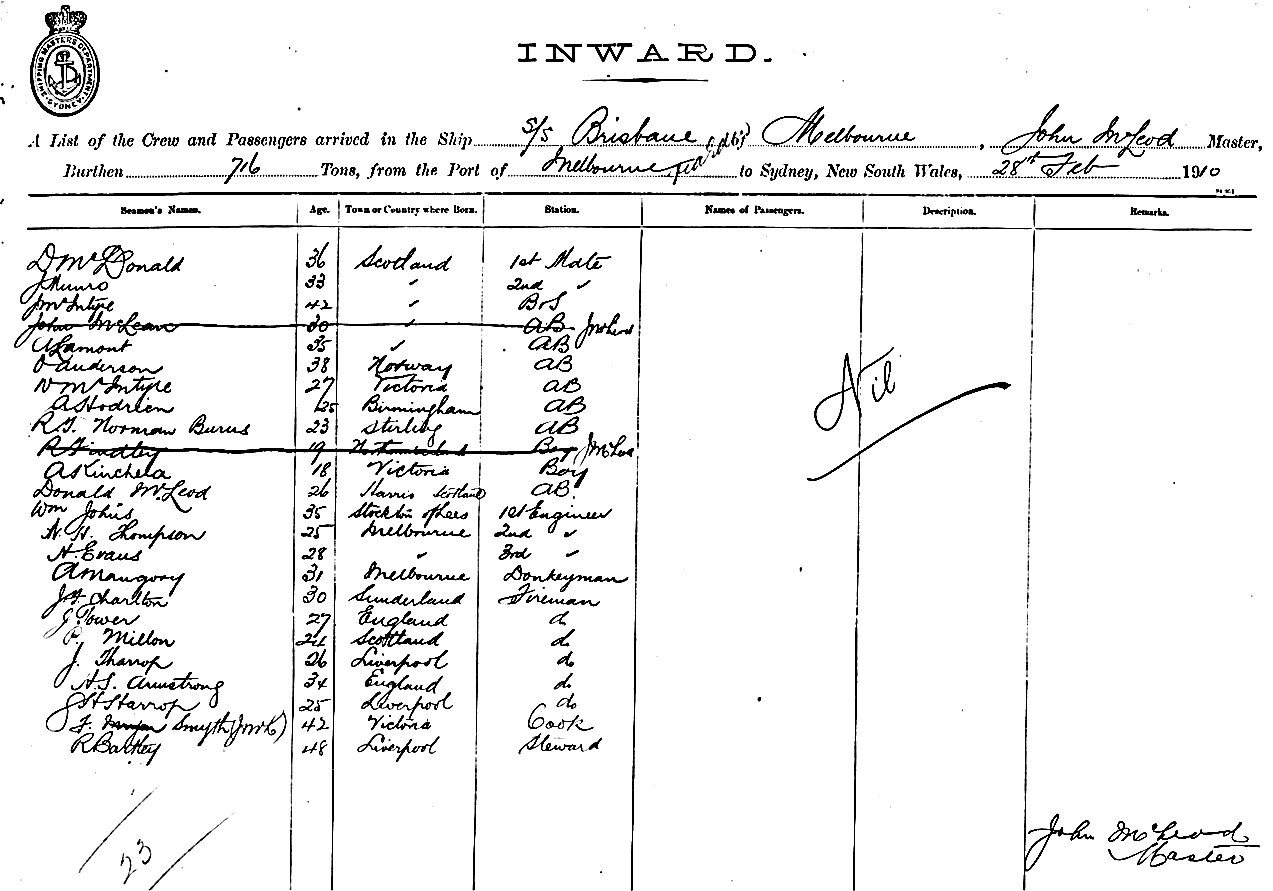 SHIPPING MASTERS DEPARTMENT SYDNEY
INWARD.
A List of the Crew and Passengers arrived in the Ship S/S Brisbane Melbourne, John McLeod Master,
Burthen 716 Tons, from the Port of Melbourne to Sydney, New South Wales, 28th Feb 1910
Seamen's Names. Age. Town or Country where Born. Station. Names of Passengers. Description. Remarks.
D McDonald 36 Scotland 1st Mate
J Munro 33 " 2nd "
J McIntyre 42 " BoS
John McLean 30 " AB J McLeod
A Lamont 35 " AB
O Anderson 38 Norway AB
N McIntyre 27 Victoria AB
A Hodrien 25 Birmingham AB
R.G. Norman Burus 23 Stirling AB
R Findley 19 Boy J McLeod
A Kinchela 18 Victoria Boy
Donald McLeod 26 Harris Scotland AB.
Wm Johns 35 Stockton of Tees 1st Engineer
N. H. Thompson 25 Melbourne 2nd "
H. Evans 28 " 3rd "
A Mangovy 31 Melbourne Donkeyman
J F Charlton 30 Sunderland Fireman
J Power 27 England do
P. Millon 24 Scotland do
J. Tharrop 26 Liverpool do
H.S. Armstrong 34 England do
J H Starrop 25 Liverpool do
F. Smyth 42 Victoria Cook
R Bartley 48 Liverpool Steward
Nil
23
John McLeod
Master